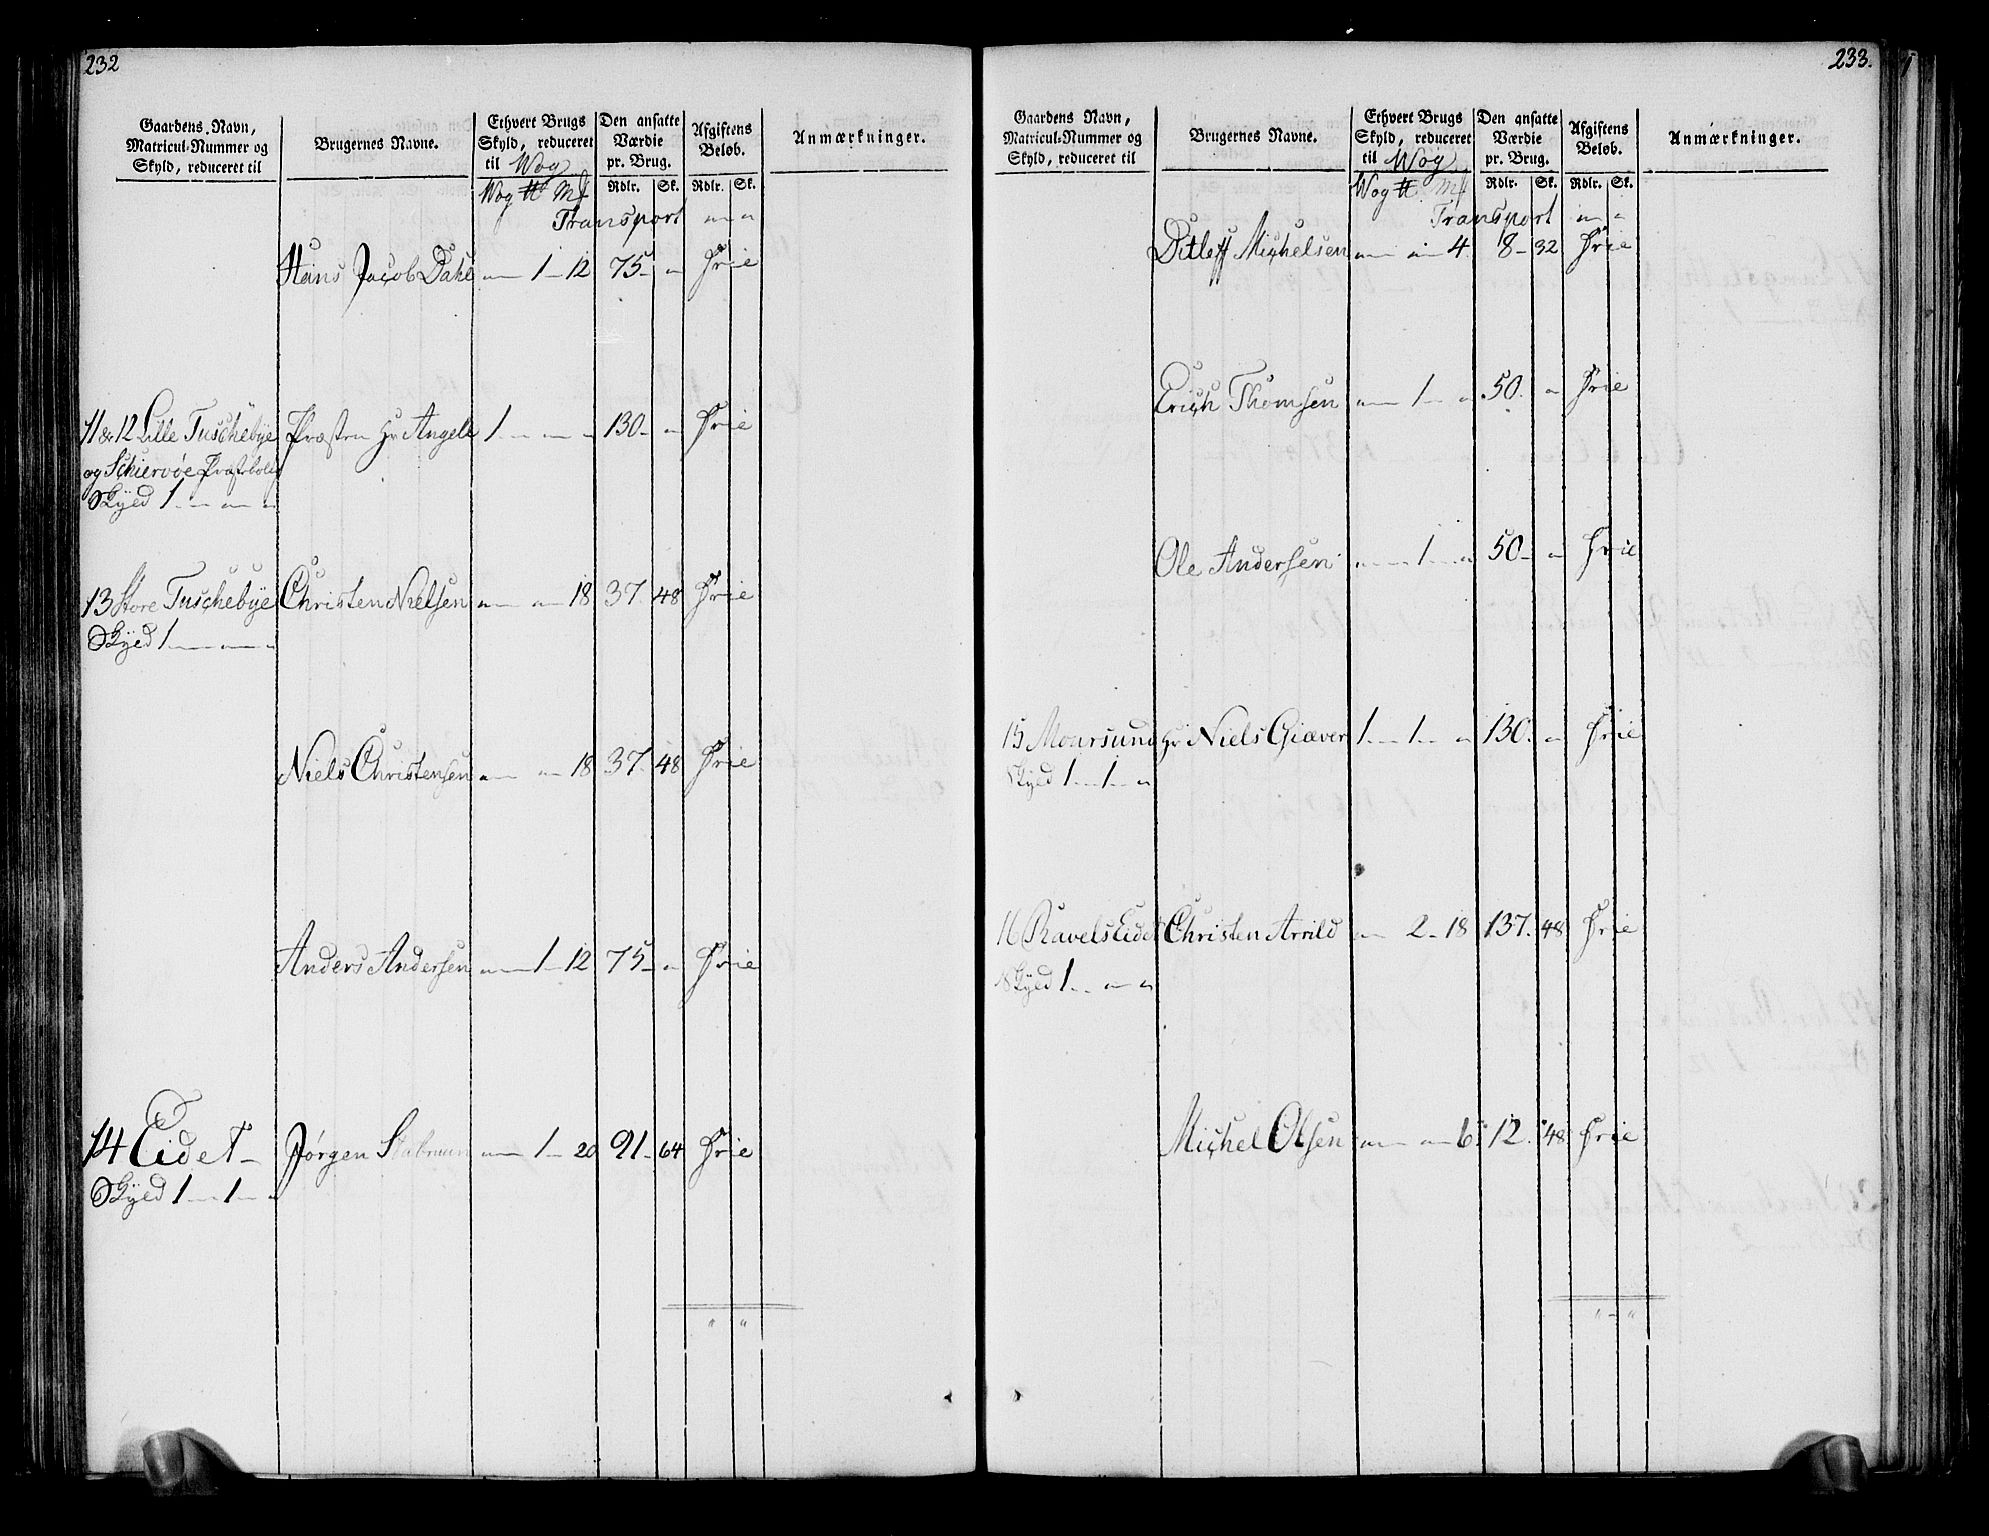 232
Gaardens Navn, Matricul-Nummer og Skyld, reduceret til
Brugernes Navne.
Ethvert Brugs Skyld, reduceret til Wog
Den ansatte Værdie pr. Brug.
Afgiftens Beløb.
Anmærkninger.
Wog ℔ Mk Rdlr. Sk. Rdlr. Sk.
Transport " — "
Hans Jacob Dahl " — 1 — 12 75 — " Frie
11 & 12 Lille Tuschebye Præsten Hr Angell 1 — " — " 130 — " Frie
og Schiervøe Præstebolig
Skyld 1 — " — "
13 Store Tuschebye Christen Nielsen " — " — 18 37. 48 Frie
Skyld 1 — " — "
Niels Christensen " — " — 18 37. 48 Frie
Anders Andersen " — 1 — 12 75 — " Frie
14 Eidet — Jørgen " — 1 — 20 91 — 64 Frie
Skyld 1 — 1 — "
" "
233.
Gaardens Navn, Matricul-Nummer og Skyld, reduceret til
Brugernes Navne.
Ethvert Brugs Skyld, reduceret til Wog
Den ansatte Værdie pr. Brug.
Afgiftens Beløb.
Anmærkninger.
Wog ℔ Mk Rdlr. Sk. Rdlr. Sk.
Transport " — "
Ditleff Michelsen " — " — 4 8 — 32 Frie
Erich Thomsen " — 1 — " 50. — " Frie
Ole Andersen " — 1 — " 50 — " Frie
15 Moursund Hr Niels Giæver 1 — 1 — " 130. — " Frie
Skyld 1 — 1 — "
16 Ravels Eidet Christen Arrild " — 2 — 18 137. 48 Frie
Skyld 1 — " — "
Michel Olsen " — " — 6 12. 48 Frie
" — "